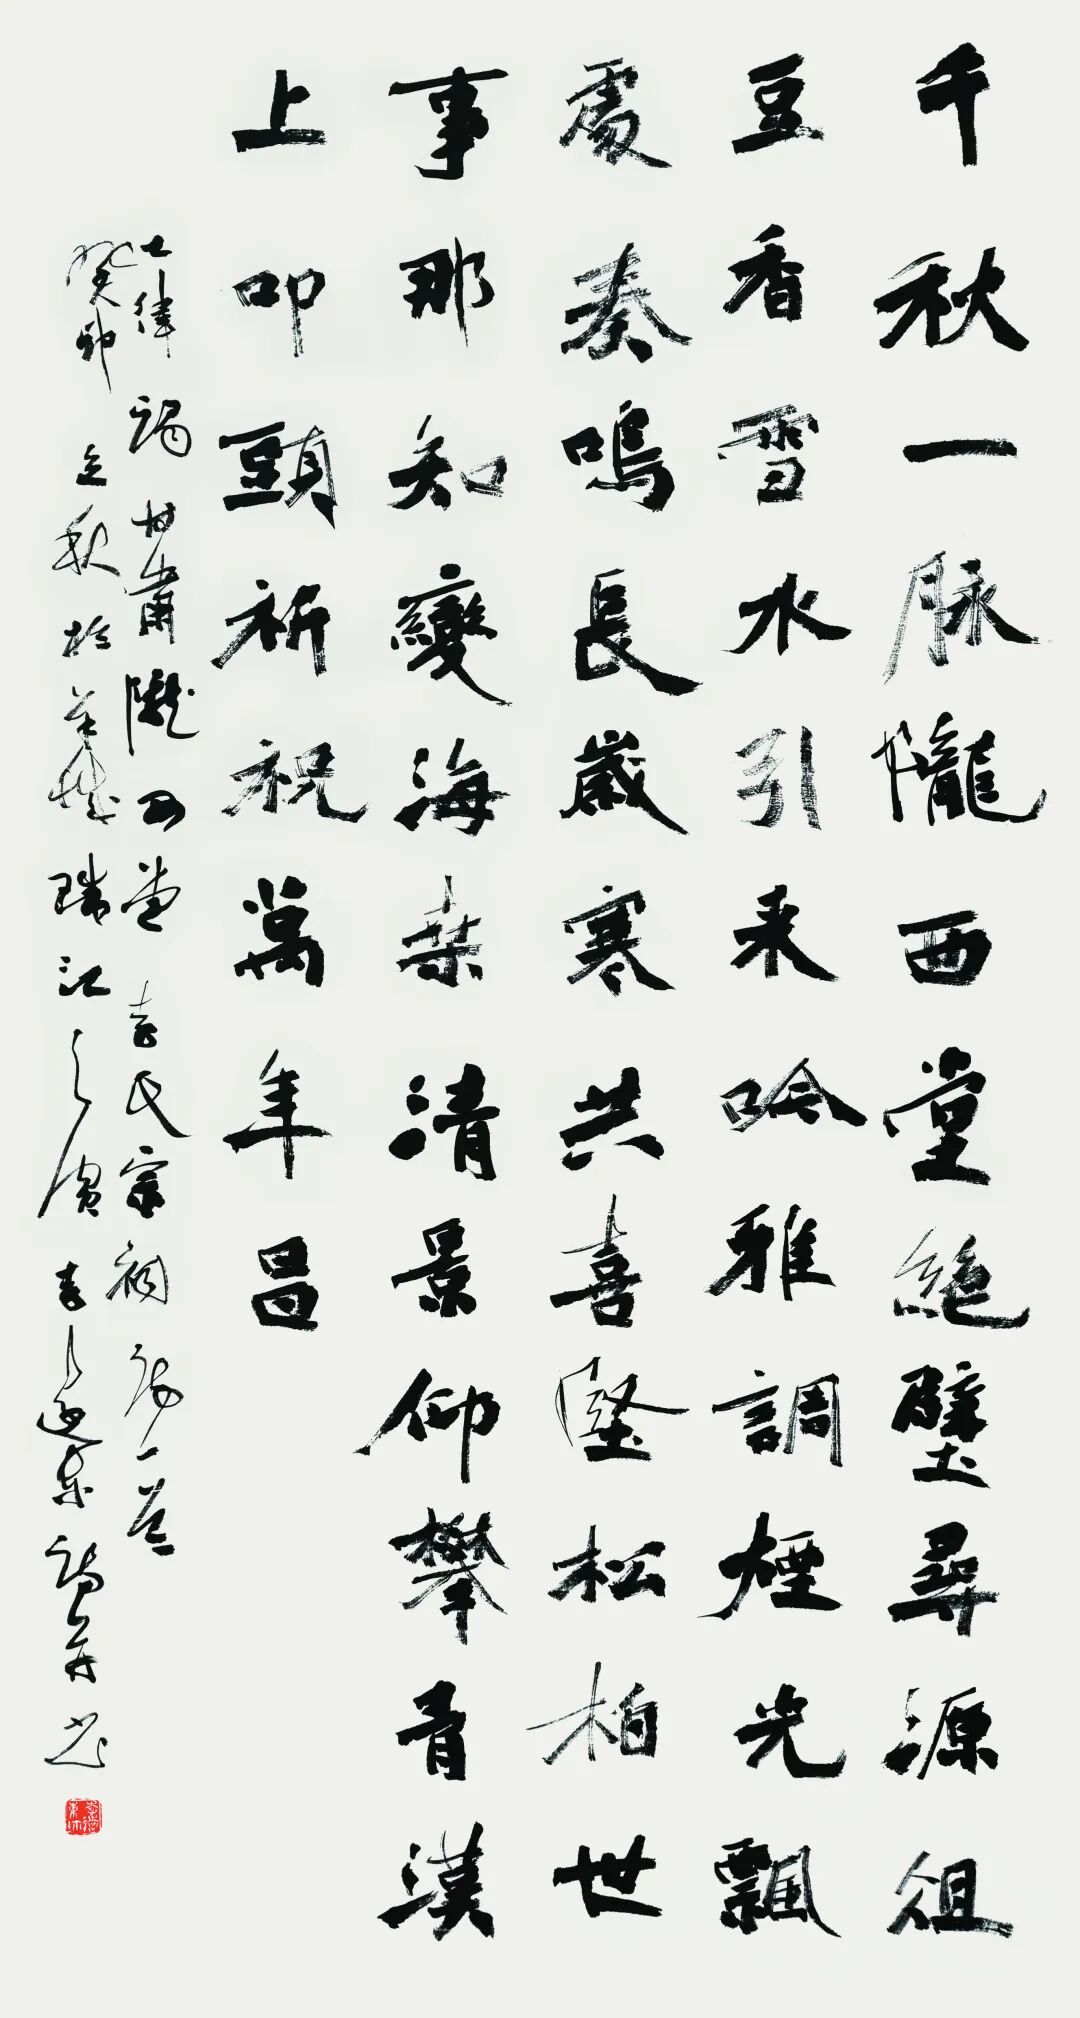 千秋一脉隴西堂絶壁尋源俎
豆香雪水引来吟雅調煙光飄
處奏鳴長歲寒共喜堅松柏世
事那知變海桑清景仰攀霄漢
上叩頭祈祝萬年昌
七律 謁甘肅隴西堂李氏宗祠 一首
癸卯立秋於羊城珠江之濱 李遠東詩並書